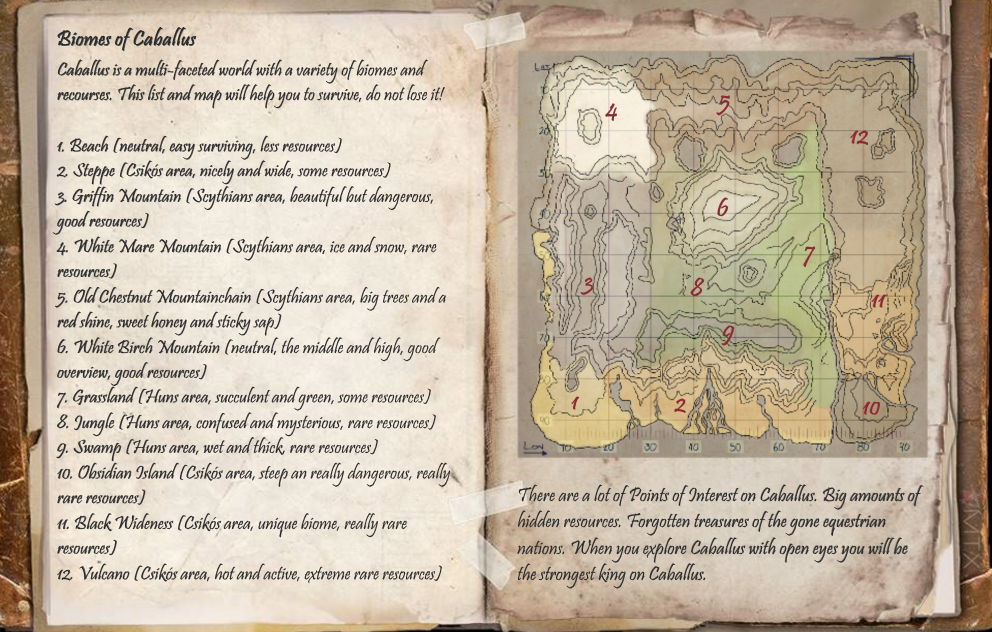 Biomes of Caballus
Caballus is a multi-faceted world with a variety of biomes and
recourses. This list and map will help you to survive, do not lose it!
1. Beach (neutral, easy surviving, less resources)
2. Steppe (Csikós area, nicely and wide, some resources)
3. Griffin Mountain (Scythians area, beautiful but dangerous,
good resources)
4. White Mare Mountain (Scythians area, ice and snow, rare
resources)
5. Old Chestnut Mountainchain (Scythians area, big trees and a
red shine, sweet honey and sticky sap)
6. White Birch Mountain (neutral, the middle and high, good
overview, good resources)
7. Grassland (Huns area, succulent and green, some resources)
8. Jungle (Huns area, confused and mysterious, rare resources)
9. Swamp (Huns area, wet and thick, rare resources)
10. Obsidian Island (Csikós area, steep an really dangerous, really
rare resources)
11. Black Wideness (Csikós area, unique biome, really rare
resources)
12. Vulcano (Csikós area, hot and active, extreme rare resources)
4
5
12
6
7
3
8
11
9
1
2
10
Lon 10 20 30 40 50 60 70 80 90
There are a lot of Points of Interest on Caballus. Big amounts of
hidden resources. Forgotten treasures of the gone equestrian
nations. When you explore Caballus with open eyes you will be
the strongest king on Caballus.